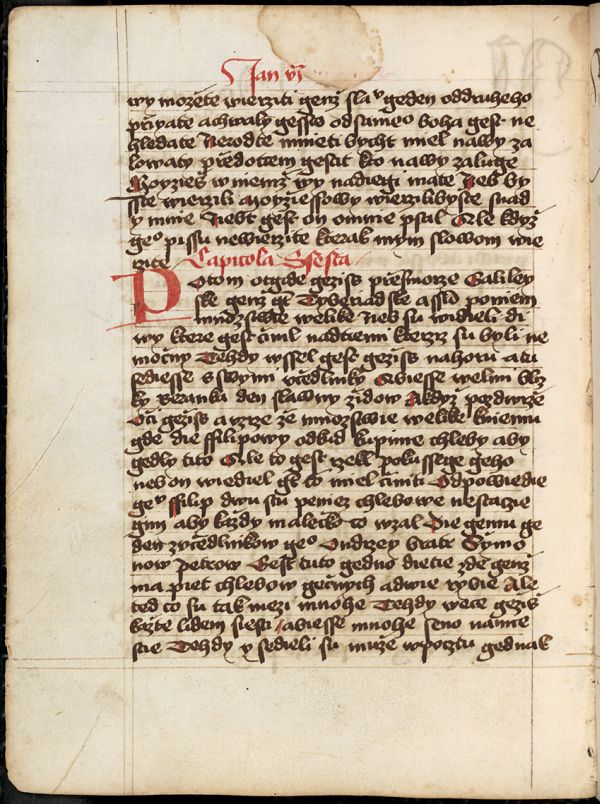 Jan vi
wy mozete wierziti genz slaᵛ geden oddruheho
przyate achwaly gessto odsameᵒ boha gest ne
hledate Nerodte mnieti bycht miel nawy za
lowaty przedottem gestit kto nawy zaluge
Moyzies wniemz wy nadiegi mate Neb by
sste wierzili moyziessowy wierzilibyste snad
y mnie Nebt gest on omnie psal Ale kdyz
geᵒ pissu newierzite kterak mym slowom wie
rzite Capitola Ssesta
Potom otgide geziss przesmorze Galiley
ske genz gt Tyberiadske a ssło poniem
mnozstwie welike Neb su widieli di
wy kteze gest czinil nadtiemi kterzz su byli ne
moczny Tehdy wssel gest geziss nahoru atu
sediesse s swymi vczedlniky Abiesse welmi bliz
ky Beranka den slawny zidow Akdyz pozdwize
Oczi geziss a vzrze ze mnozstwie welike kniemu
gde die ffilipowy odkud kupime chleby aby
gedly tito Ale to gest rzekl pokussege geho
neb on wiediel gt co miel cziniti Odpowiedie
geᵛ ffilip dwu stu peniez chlebowe nestaczie
gim aby kazdy maleczko to wzal Die gemu ge
den zvczedlnikow geᵒ Ondrzey bratr Symo
now petrow Gest tuto gedno dietie zde genz
ma piet chlebow geczmych adwie rybie Ale
ted co su tak mezi mnohe Tehdy wece gezis
kazte lidem siesti Abiesse mnohe seno namie
stie Tehdy y sedieli su muze wpocztu gednak